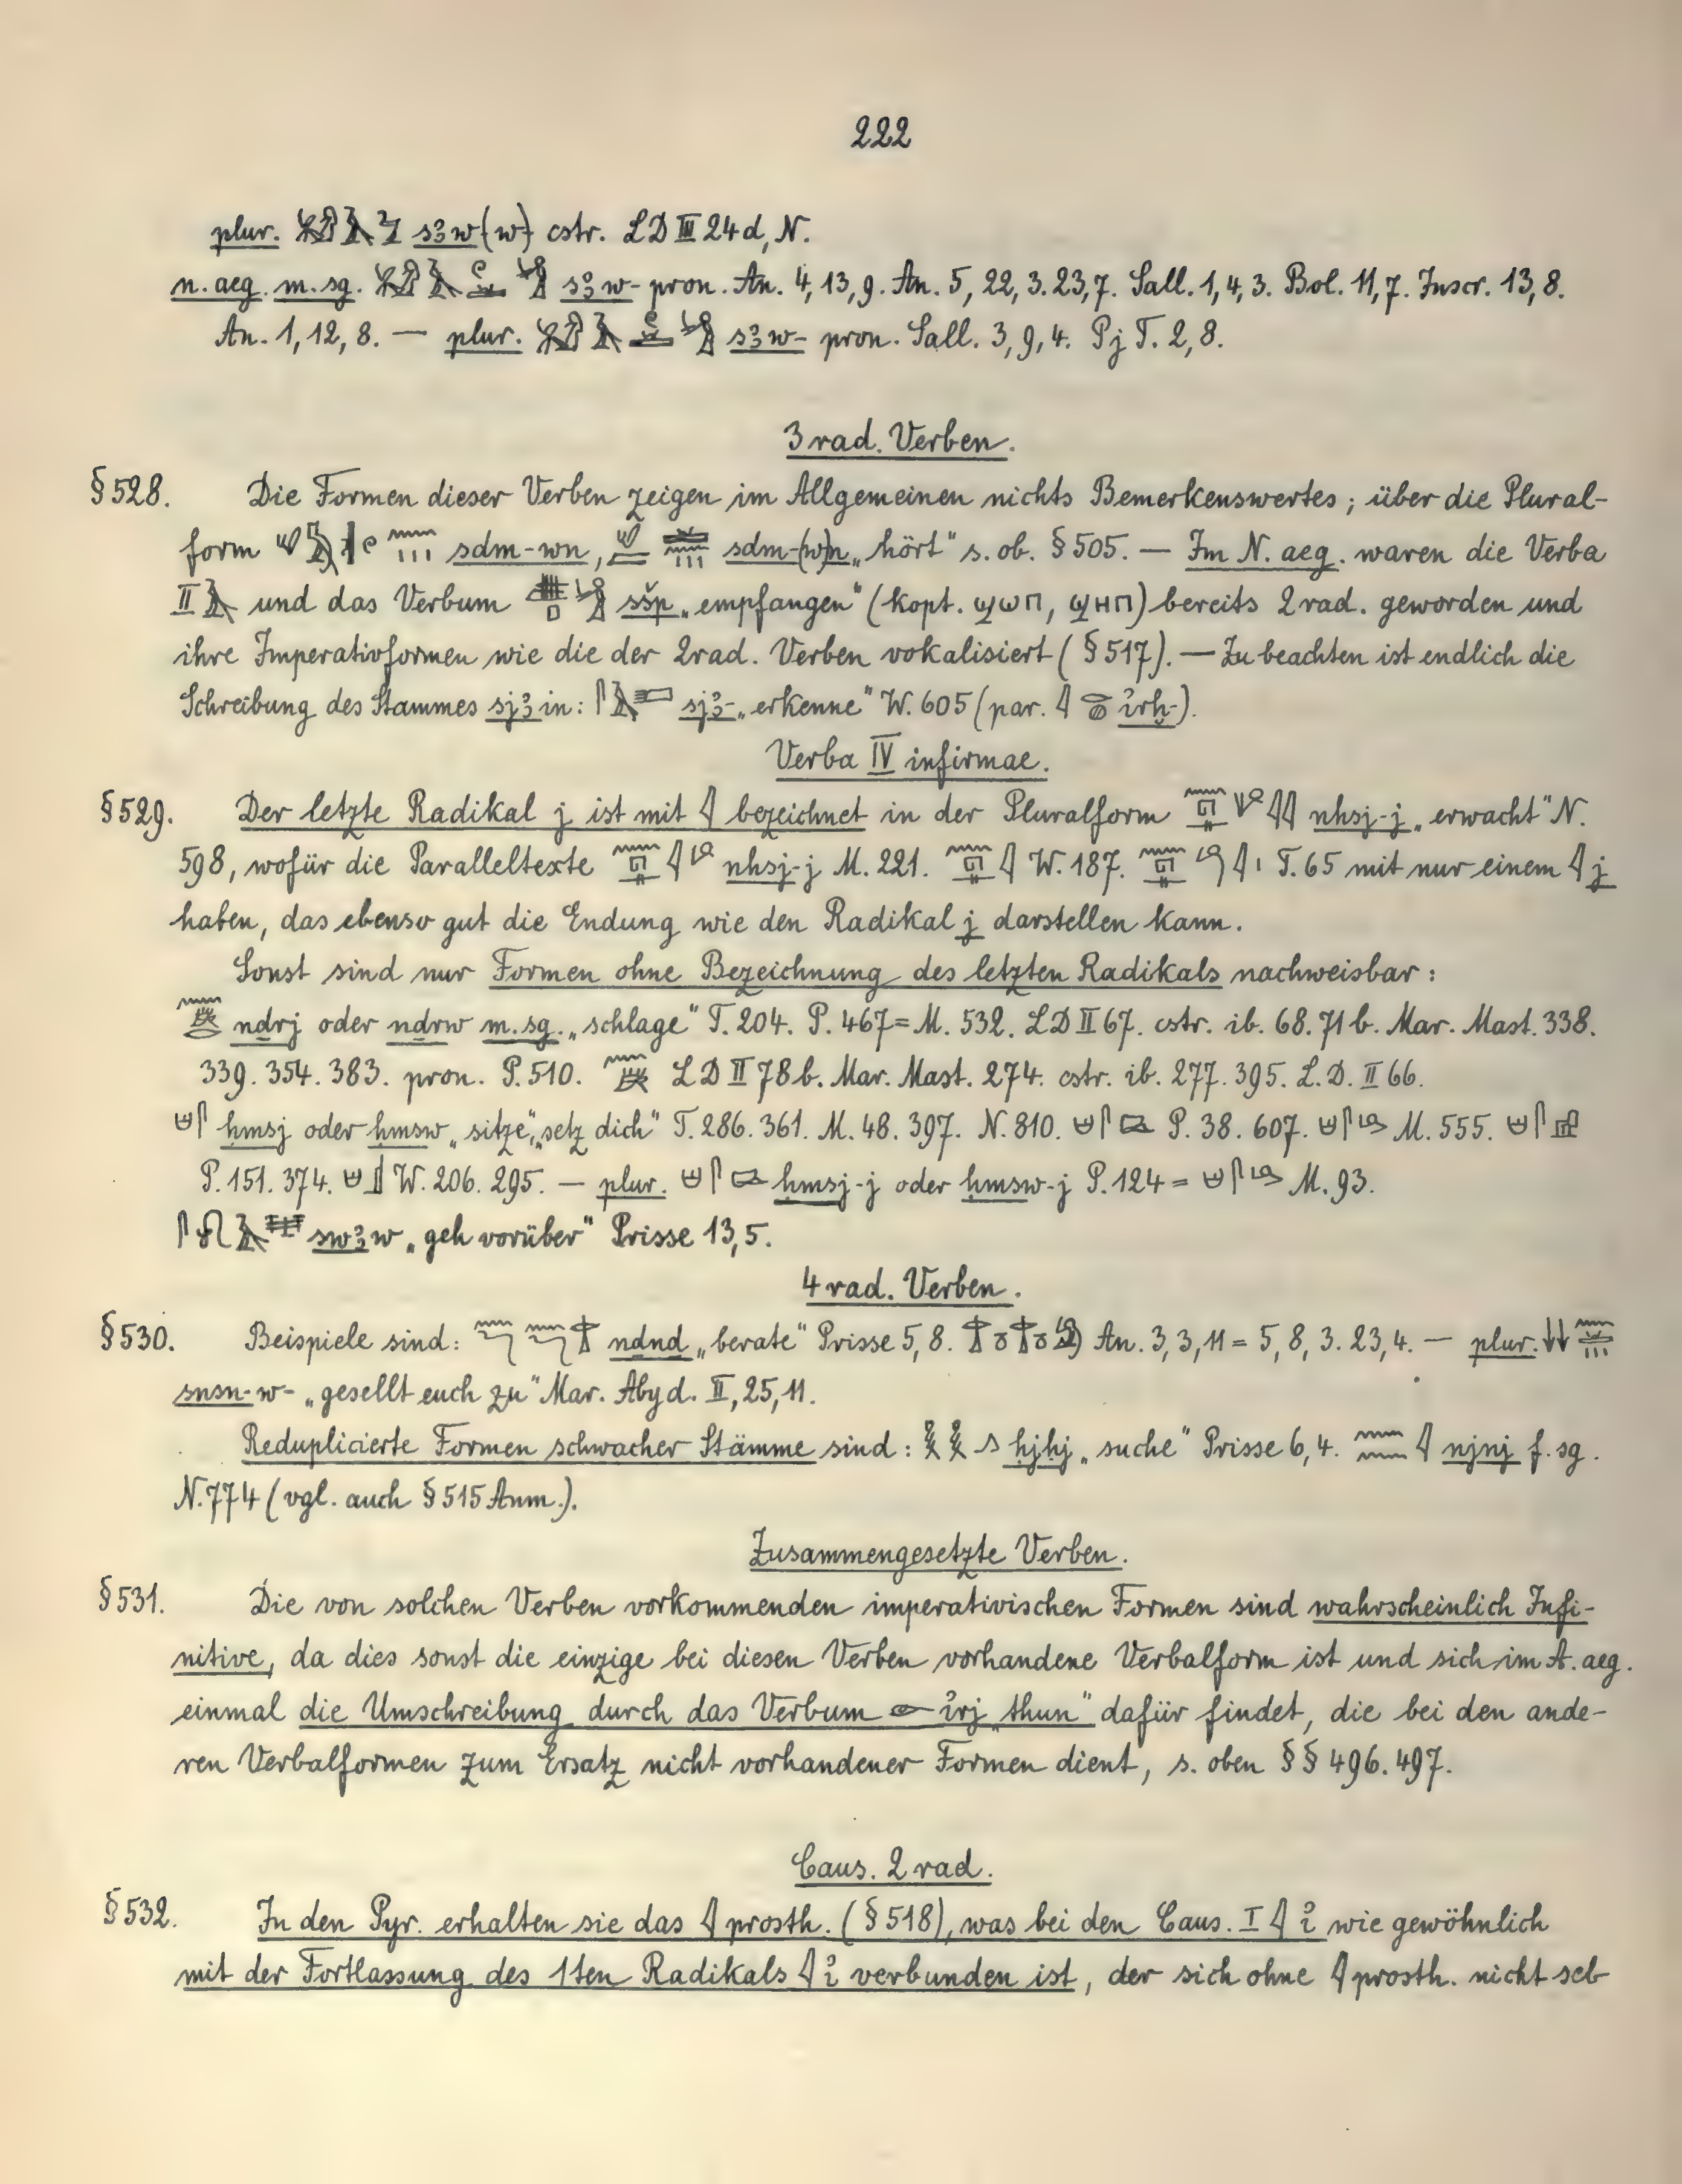 222
plur. sꜣw(w) cstr. LD III 24d, N.
n. aeg. m. sg. sꜣw- pron. An. 4, 13, 9. An. 5, 22, 3. 23, 7. Sall. 1, 4, 3. Bol. 11, 7. Inscr. 13, 8.
An. 1, 12, 8. — plur. sꜣw- pron. Sall. 3, 9, 4. Pj T. 2, 8.
3 rad. Verben.
§ 528. Die Formen dieser Verben zeigen im Allgemeinen nichts Bemerkenswertes; über die Plural-
form sdm-wn, sdm-(w)n „hört" s. ob. § 505. — Im N. aeg. waren die Verba
II und das Verbum sšp „empfangen" (kopt. ϣⲱⲡ, ϣⲏⲡ) bereits 2 rad. geworden und
ihre Imperativformen wie die der 2rad. Verben vokalisiert (§ 517). — Zu beachten ist endlich die
Schreibung des Stammes sjꜣ in: sjꜣ- „erkenne" W. 605 (par. ı͗rḫ-).
Verba IV infirmae.
§ 529. Der letzte Radikal j ist mit 𓇋 bezeichnet in der Pluralform nhsj-j „erwacht" N.
598, wofür die Paralleltexte nhsj-j M. 221. W. 187. T. 65 mit nur einem 𓇋 j
haben, das ebenso gut die Endung wie den Radikal j darstellen kann.
Sonst sind nur Formen ohne Bezeichnung des letzten Radikals nachweisbar:
ndrj oder ndrw m. sg. „schlage" T. 204. P. 467 = M. 532. LD II 67. cstr. ib. 68. 71 b. Mar. Mast. 338.
339. 354. 383. pron. P. 510. LD II 78 b. Mar. Mast. 274. cstr. ib. 277. 395. L. D. II 66.
ḥmsj oder ḥmsw „sitze", „setz dich" T. 286. 361. M. 48. 397. N. 810. P. 38. 607. M. 555.
P. 151. 374. W. 206. 295. — plur. ḥmsj-j oder ḥmsw-j P. 124 = M. 93.
swꜣw „geh vorüber" Prisse 13, 5.
4 rad. Verben.
§ 530. Beispiele sind: ndnd „berate" Prisse 5, 8. An. 3, 3, 11 = 5, 8, 3. 23, 4. — plur.
snsn-w- „gesellt euch zu" Mar. Abyd. II, 25, 11.
Reduplicierte Formen schwacher Stämme sind: ḥjḥj „suche" Prisse 6, 4. njnj f. sg.
N. 774 (vgl. auch § 515 Anm.).
Zusammengesetzte Verben.
§ 531. Die von solchen Verben vorkommenden imperativischen Formen sind wahrscheinlich Infi-
nitive, da dies sonst die einzige bei diesen Verben vorhandene Verbalform ist und sich im A. aeg.
einmal die Umschreibung durch das Verbum 𓁹 ı͗rj „thun" dafür findet, die bei den ande-
ren Verbalformen zum Ersatz nicht vorhandener Formen dient, s. oben §§ 496. 497.
Caus. 2 rad.
§ 532. In den Pyr. erhalten sie das 𓇋 prosth. (§ 518), was bei den Caus. I 𓇋 ı͗ wie gewöhnlich
mit der Fortlassung des 1ten Radikals 𓇋 ı͗ verbunden ist, der sich ohne 𓇋 prosth. nicht sel-